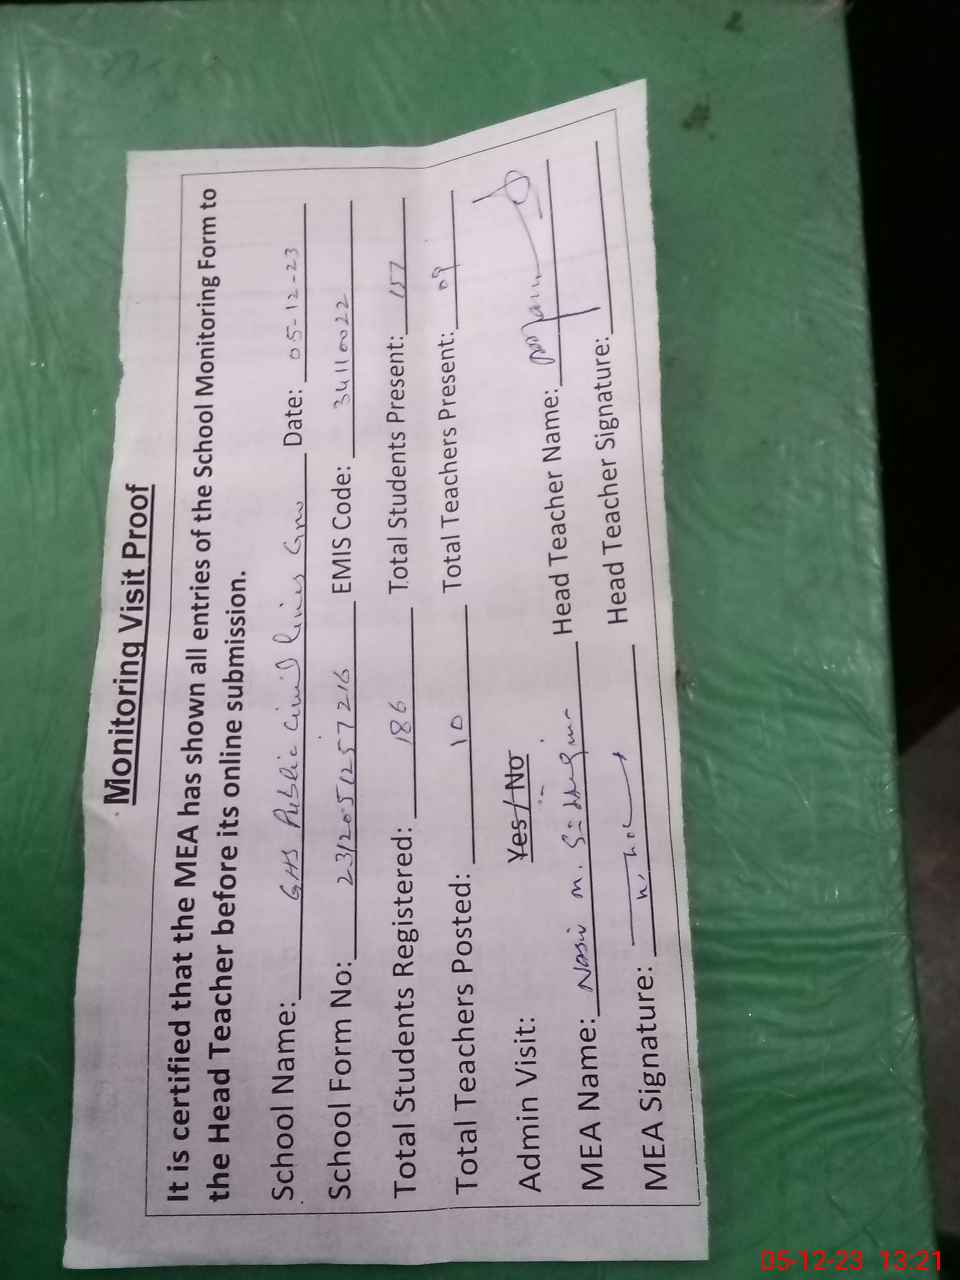 Monitoring Visit Proof
It is certified that the MEA has shown all entries of the School Monitoring Form to
the Head Teacher before its online submission.
School Name: GHS Public Civil Lines Grw Date: 05-12-23
School Form No: 231205125 7216 EMIS Code: 34110022
Total Students Registered: 186 Total Students Present: 157
Total Teachers Posted: 10 Total Teachers Present: 09
Admin Visit: Yes / No
MEA Name: Nasir M. Head Teacher Name:
MEA Signature: Head Teacher Signature:
05-12-23 13:21